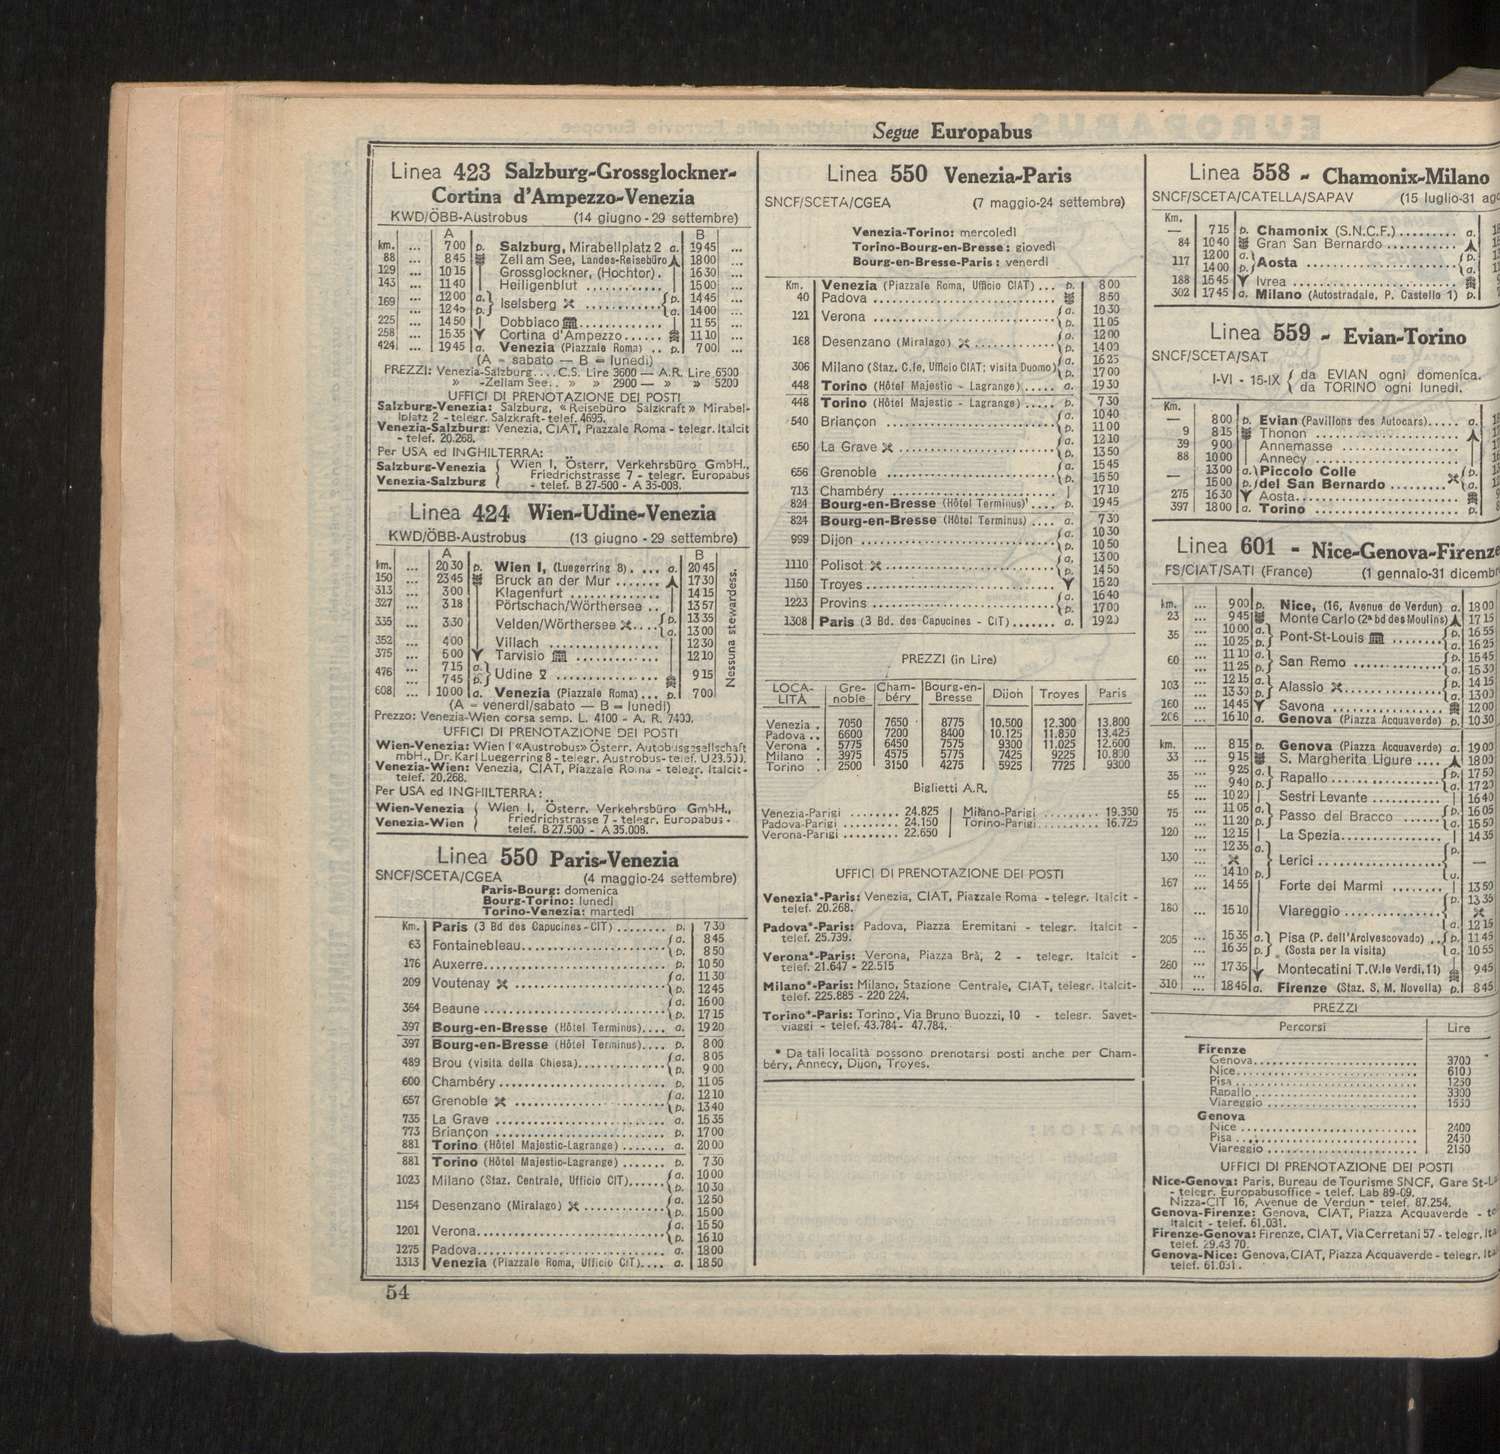 Segue Europabus
Linea 423 Salzburg-Grossglockner-
Cortina d'Ampezzo-Venezia
KWD/ÖBB-Austrobus (14 giugno - 29 settembre)
A B
km. ... 7 00 p. Salzburg, Mirabellplatz 2 a. 19 45 ...
88 ... 8 45 Zell am See, Landes-Reisebüro 18 00 ...
129 ... 10 15 Grossglockner, (Hochtor) . 16 30 ...
143 ... 11 40 Heiligenblut ............ 15 00 ...
169 ... 12 00 a. Iselsberg p. 14 45 ...
12 45 p. a. 14 00
225 ... 14 50 Dobbiaco ............ 11 55 ...
258 ... 15 35 Cortina d'Ampezzo...... 11 10 ...
424 ... 19 45 a. Venezia (Piazzale Roma) .. p. 7 00 ...
(A = sabato — B = lunedì)
PREZZI: Venezia-Salzburg....C.S. Lire 3600 — A.R. Lire 6500
» -Zellam See.. » » 2900 — » » 5200
UFFICI DI PRENOTAZIONE DEI POSTI
Salzburg-Venezia: Salzburg, «Reisebüro Salzkraft» Mirabel-
lplatz 2 - telegr. Salzkraft-telef. 4695.
Venezia-Salzburg: Venezia, CIAT, Piazzale Roma - telegr. Italcit
- telef. 20.268.
Per USA ed INGHILTERRA:
Salzburg-Venezia Wien I, Österr, Verkehrsbüro GmbH.,
Venezia-Salzburg Friedrichstrasse 7 - telegr. Europabus
- telef. B 27-500 - A 35-008.
Linea 424 Wien-Udine-Venezia
KWD/ÖBB-Austrobus (13 giugno - 29 settembre)
A B
km. ... 20 30 p. Wien I, (Luegerring 8). ... a. 20 45
150 ... 23 45 Bruck an der Mur ....... 17 30
313 ... 3 00 Klagenfurt ............. 14 15
327 ... 3 18 Pörtschach/Wörthersee .. 13 57
335 ... 3 30 Velden/Wörthersee .... p. 13 35
a. 13 00
352 ... 4 00 Villach ................ 12 30
375 ... 5 00 Tarvisio ............ 12 10
476 ... 7 15 a. Udine ............... 9 15
... 7 45 p.
608 ... 10 00 a. Venezia (Piazzale Roma)... p. 7 00
Nessuna stewardess.
(A = venerdì/sabato — B = lunedì)
Prezzo: Venezia-Wien corsa semp. L. 4100 - A. R. 7400.
UFFICI DI PRENOTAZIONE DEI POSTI
Wien-Venezia: Wien I «Austrobus» Österr. Autobusgesellschaft
mbH., Dr. Karl Luegerring 8 - telegr. Austrobus- telef. U 23.500.
Venezia-Wien: Venezia, CIAT, Piazzale Roma - telegr. Italcit-
telef. 20.268.
Per USA ed INGHILTERRA:
Wien-Venezia Wien I, Österr. Verkehrsbüro GmbH.,
Venezia-Wien Friedrichstrasse 7 - telegr. Europabus -
telef. B 27.500 - A 35.008.
Linea 550 Paris-Venezia
SNCF/SCETA/CGEA (4 maggio-24 settembre)
Paris-Bourg: domenica
Bourg-Torino: lunedì
Torino-Venezia: martedì
Km. Paris (3 Bd des Capucines-CIT) ........ p. 7 30
63 Fontainebleau........................ a. 8 45
p. 8 50
176 Auxerre.............................. p. 10 50
209 Voutenay ........................ a. 11 30
p. 12 45
364 Beaune .............................. a. 16 00
p. 17 15
397 Bourg-en-Bresse (Hôtel Terminus).... a. 19 20
397 Bourg-en-Bresse (Hôtel Terminus).... p. 8 00
489 Brou (visita della Chiesa)............. a. 8 05
p. 9 00
600 Chambéry............................. p. 11 05
657 Grenoble ........................ a. 12 10
p. 13 40
735 La Grave ............................ a. 15 35
773 Briançon ............................ p. 17 00
881 Torino (Hôtel Majestic-Lagrange) ....... a. 20 00
881 Torino (Hôtel Majestic-Lagrange) ....... p. 7 30
1023 Milano (Staz. Centrale, Ufficio CIT)...... a. 10 00
p. 10 30
1154 Desenzano (Miralago) ............... a. 12 50
p. 15 00
1201 Verona............................... a. 15 50
p. 16 10
1275 Padova............................... a. 18 00
1313 Venezia (Piazzale Roma, Ufficio CIT).... a. 18 50
54
Linea 550 Venezia-Paris
SNCF/SCETA/CGEA (7 maggio-24 settembre)
Venezia-Torino: mercoledì
Torino-Bourg-en-Bresse: giovedì
Bourg-en-Bresse-Paris: venerdì
Km. Venezia (Piazzale Roma, Ufficio CIAT) ... p. 8 00
40 Padova .............................. 8 50
121 Verona .............................. a. 10 30
p. 11 05
168 Desenzano (Miralago) ............ a. 12 00
p. 14 00
306 Milano (Staz. C.le, Ufficio CIAT: visita Duomo) a. 16 25
p. 17 00
448 Torino (Hôtel Majestic - Lagrange) ..... a. 19 30
448 Torino (Hôtel Majestic - Lagrange) ..... p. 7 30
540 Briançon ............................ a. 10 40
p. 11 00
650 La Grave ........................ a. 12 10
p. 13 50
656 Grenoble ............................ a. 15 45
p. 15 50
713 Chambéry ............................ 17 10
824 Bourg-en-Bresse (Hôtel Terminus) .... p. 19 45
824 Bourg-en-Bresse (Hôtel Terminus) .... a. 7 30
999 Dijon ............................... a. 10 30
p. 10 50
1110 Polisot ......................... a. 13 00
p. 14 50
1150 Troyes .............................. 15 20
1223 Provins ............................. a. 16 40
p. 17 00
1308 Paris (3 Bd. des Capucines - CIT) ....... a. 19 20
PREZZI (in Lire)
LOCALITÀ Grenoble Chambéry Bourg-en-Bresse Dijon Troyes Paris
Venezia . 7050 7650 8775 10.500 12.300 13.800
Padova .. 6600 7200 8400 10.125 11.850 13.425
Verona . 5775 6450 7575 9300 11.025 12.600
Milano . 3975 4575 5775 7425 9225 10.800
Torino . 2500 3150 4275 5925 7725 9300
Biglietti A.R.
Venezia-Parigi ........ 24.825 Milano-Parigi ......... 19.350
Padova-Parigi ......... 24.150 Torino-Parigi ......... 16.725
Verona-Parigi ......... 22.650
UFFICI DI PRENOTAZIONE DEI POSTI
Venezia*-Paris: Venezia, CIAT, Piazzale Roma - telegr. Italcit -
telef. 20.268.
Padova*-Paris: Padova, Piazza Eremitani - telegr. Italcit -
telef. 25.739.
Verona*-Paris: Verona, Piazza Brà, 2 - telegr. Italcit -
telef. 21.647 - 22.515
Milano*-Paris: Milano, Stazione Centrale, CIAT, telegr. Italcit-
telef. 225.885 - 220 224.
Torino*-Paris: Torino, Via Bruno Buozzi, 10 - telegr. Savet-
viaggi - telef. 43.784 - 47.784.
* Da tali località possono prenotarsi posti anche per Cham-
béry, Annecy, Dijon, Troyes.
Linea 558 - Chamonix-Milano
SNCF/SCETA/CATELLA/SAPAV (15 luglio-31
Km.
— 7 15 p. Chamonix (S.N.C.F.) ......... a.
84 10 40 Gran San Bernardo ...........
117 12 00 a. Aosta ........................ p.
14 00 p. a.
188 16 45 Ivrea ........................
302 17 45 a. Milano (Autostradale, P. Castello 1) p.
Linea 559 - Evian-Torino
SNCF/SCETA/SAT
I-VI - 15-IX da EVIAN ogni domenica.
da TORINO ogni lunedì.
Km.
— 8 00 p. Evian (Pavillons des Autocars)..... a.
9 8 15 Thonon ......................
39 9 00 Annemasse ...................
88 10 00 Annecy ......................
— 13 00 a. Piccolo Colle p.
15 00 p. del San Bernardo ......... a.
275 16 30 Aosta........................
397 18 00 a. Torino ...................... p.
Linea 601 - Nice-Genova-Firenze
FS/CIAT/SATI (France) (1 gennaio-31
km. ... 9 00 p. Nice, (16, Avenue de Verdun) a. 18 00
23 ... 9 45 Monte Carlo (2ª bd des Moulins) 17 15
35 ... 10 00 a. Pont-St-Louis ........ p. 16 55
10 25 p. a. 16 25
60 ... 11 10 a. San Remo .............. p. 15 45
11 25 p. a. 15 30
103 ... 12 15 a. Alassio ............. p. 14 15
13 30 p. a. 13 00
160 ... 14 45 Savona .................. 12 00
206 ... 16 10 a. Genova (Piazza Acquaverde) p. 10 30
km. ... 8 15 p. Genova (Piazza Acquaverde) a. 19 00
33 ... 9 15 S. Margherita Ligure .... 18 00
35 ... 9 25 a. Rapallo ............... p. 17 50
9 40 p. a. 17 20
55 ... 10 20 Sestri Levante .......... 16 40
75 ... 11 05 a. Passo del Bracco ...... p. 16 05
11 20 p. a. 15 50
120 ... 12 15 La Spezia................ 14 35
130 ... 12 35 a. Lerici ................ p. —
14 10 p.
167 ... 14 55 Forte dei Marmi ........ 13 50
180 ... 15 10 Viareggio .............. p. 13 35
a. 12 15
205 ... 15 35 a. Pisa (P. dell'Arcivescovado) .. p. 11 45
... 16 35 p. (Sosta per la visita) a. 10 55
260 ... 17 35 Montecatini T.(V.le Verdi, 11) 9 45
310 ... 18 45 a. Firenze (Staz. S. M. Novella) p. 8 45
PREZZI
Percorsi Lire
Firenze
Genova............................ 3700
Nice.............................. 6100
Pisa.............................. 1250
Rapallo .......................... 3300
Viareggio ........................ 1550
Genova
Nice ............................. 2400
Pisa ............................. 2450
Viareggio ........................ 2150
UFFICI DI PRENOTAZIONE DEI POSTI
Nice-Genova: Paris, Bureau de Tourisme SNCF, Gare
- telegr. Europabusoffice - telef. Lab 89-09.
Nizza-CIT 16, Avenue de Verdun - telef. 87.254.
Genova-Firenze: Genova, CIAT, Piazza Acquaverde -
Italcit - telef. 61.031.
Firenze-Genova: Firenze, CIAT, Via Cerretani 57 - telegr.
telef. 29.43 70.
Genova-Nice: Genova, CIAT, Piazza Acquaverde - telegr.
telef. 61.031.